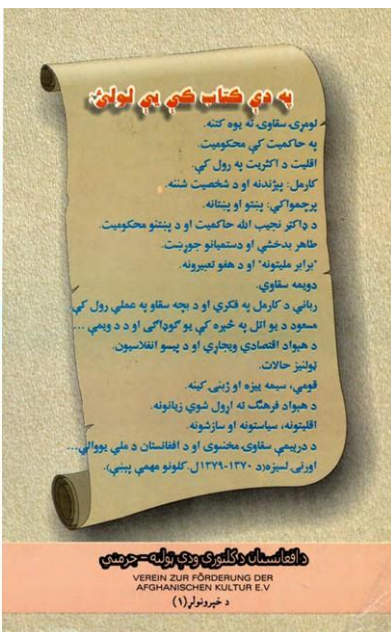 په دې کتاب کې يې لولئ:
لومړۍ سقاوۍ ته يوه کتنه.
په حاکميت کې محکوميت.
اقليت د اکثريت په رول کې.
کارمل: پېژندنه او د شخصيت شننه.
پرچمواکي: پښتو او پښتانه.
د ډاکتر نجيب الله حاکميت او د پښتنو محکوميت.
طاهر بدخشي او دستميانو جوړښت.
"برابر مليتونه" او د هغو تعبيرونه.
دويمه سقاوي.
رباني د کارمل په فکري او د بچه سقاو په عملي رول کې
مسعود د يو اتل په څېره کې يو ګوډاګی او د د ويمې ...
د هېواد اقتصادي ويجاړي او د پيسو انفلاسيون.
ټولنيز حالات.
قومي، سيمه ييزه او ژبنۍ کينه.
د هېواد فرهنګ ته اړول شوي زيانونه.
اقليتونه، سياستونه او سازشونه.
د درييمې سقاوۍ مخنيوی او د افغانستان د ملي يووالي...
اورنۍ لسيزه(د ۱۳۷۰-۱۳۷۹ل.کلونو مهمې پېښې).
د افغانستان د کلتوري ودې ټولنه - جرمني
VEREIN ZUR FÖRDERUNG DER
AFGHANISCHEN KULTUR E.V
د خپرونولړ(۱)